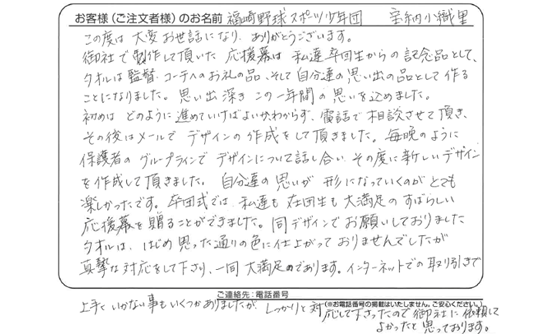 お客様(ご注文者様)のお名前 福崎野球スポーツ少年団 宝納小織里
この度は大変お世話になり、ありがとうございます。
御社で製作して頂いた応援幕は私達卒団生からの記念品として、
タオルは監督、コーチへのお礼の品、そして自分達の思い出の品として作る
ことになりました。思い出深きこの一年間の思いを込めました。
初めはどのように進めていけばよいかわからず、電話で相談させて頂き、
その後はメールでデザインの作成をして頂きました。毎晩のように
保護者のグループラインでデザインについて話し合い その度に新しいデザイン
を作成して頂きました。自分達の思いが形になっていくのがとても
楽しかったです。卒団式では、私達も在団生も大満足のすばらしい
応援幕を贈ることができました。同デザインでお願いしておりました
タオルは、はじめ思った通りの色に仕上がっておりませんでしたが
真摯な対応をして下さり、一同大満足のであります。インターネットでの取り引きで
ご連絡先:電話番号
(※お電話番号の掲載はいたしません。ご安心ください。)
上手くいかない事もいくつかありましたが、しっかりと対応して下さったので御社に依頼して
よかったと思っております。